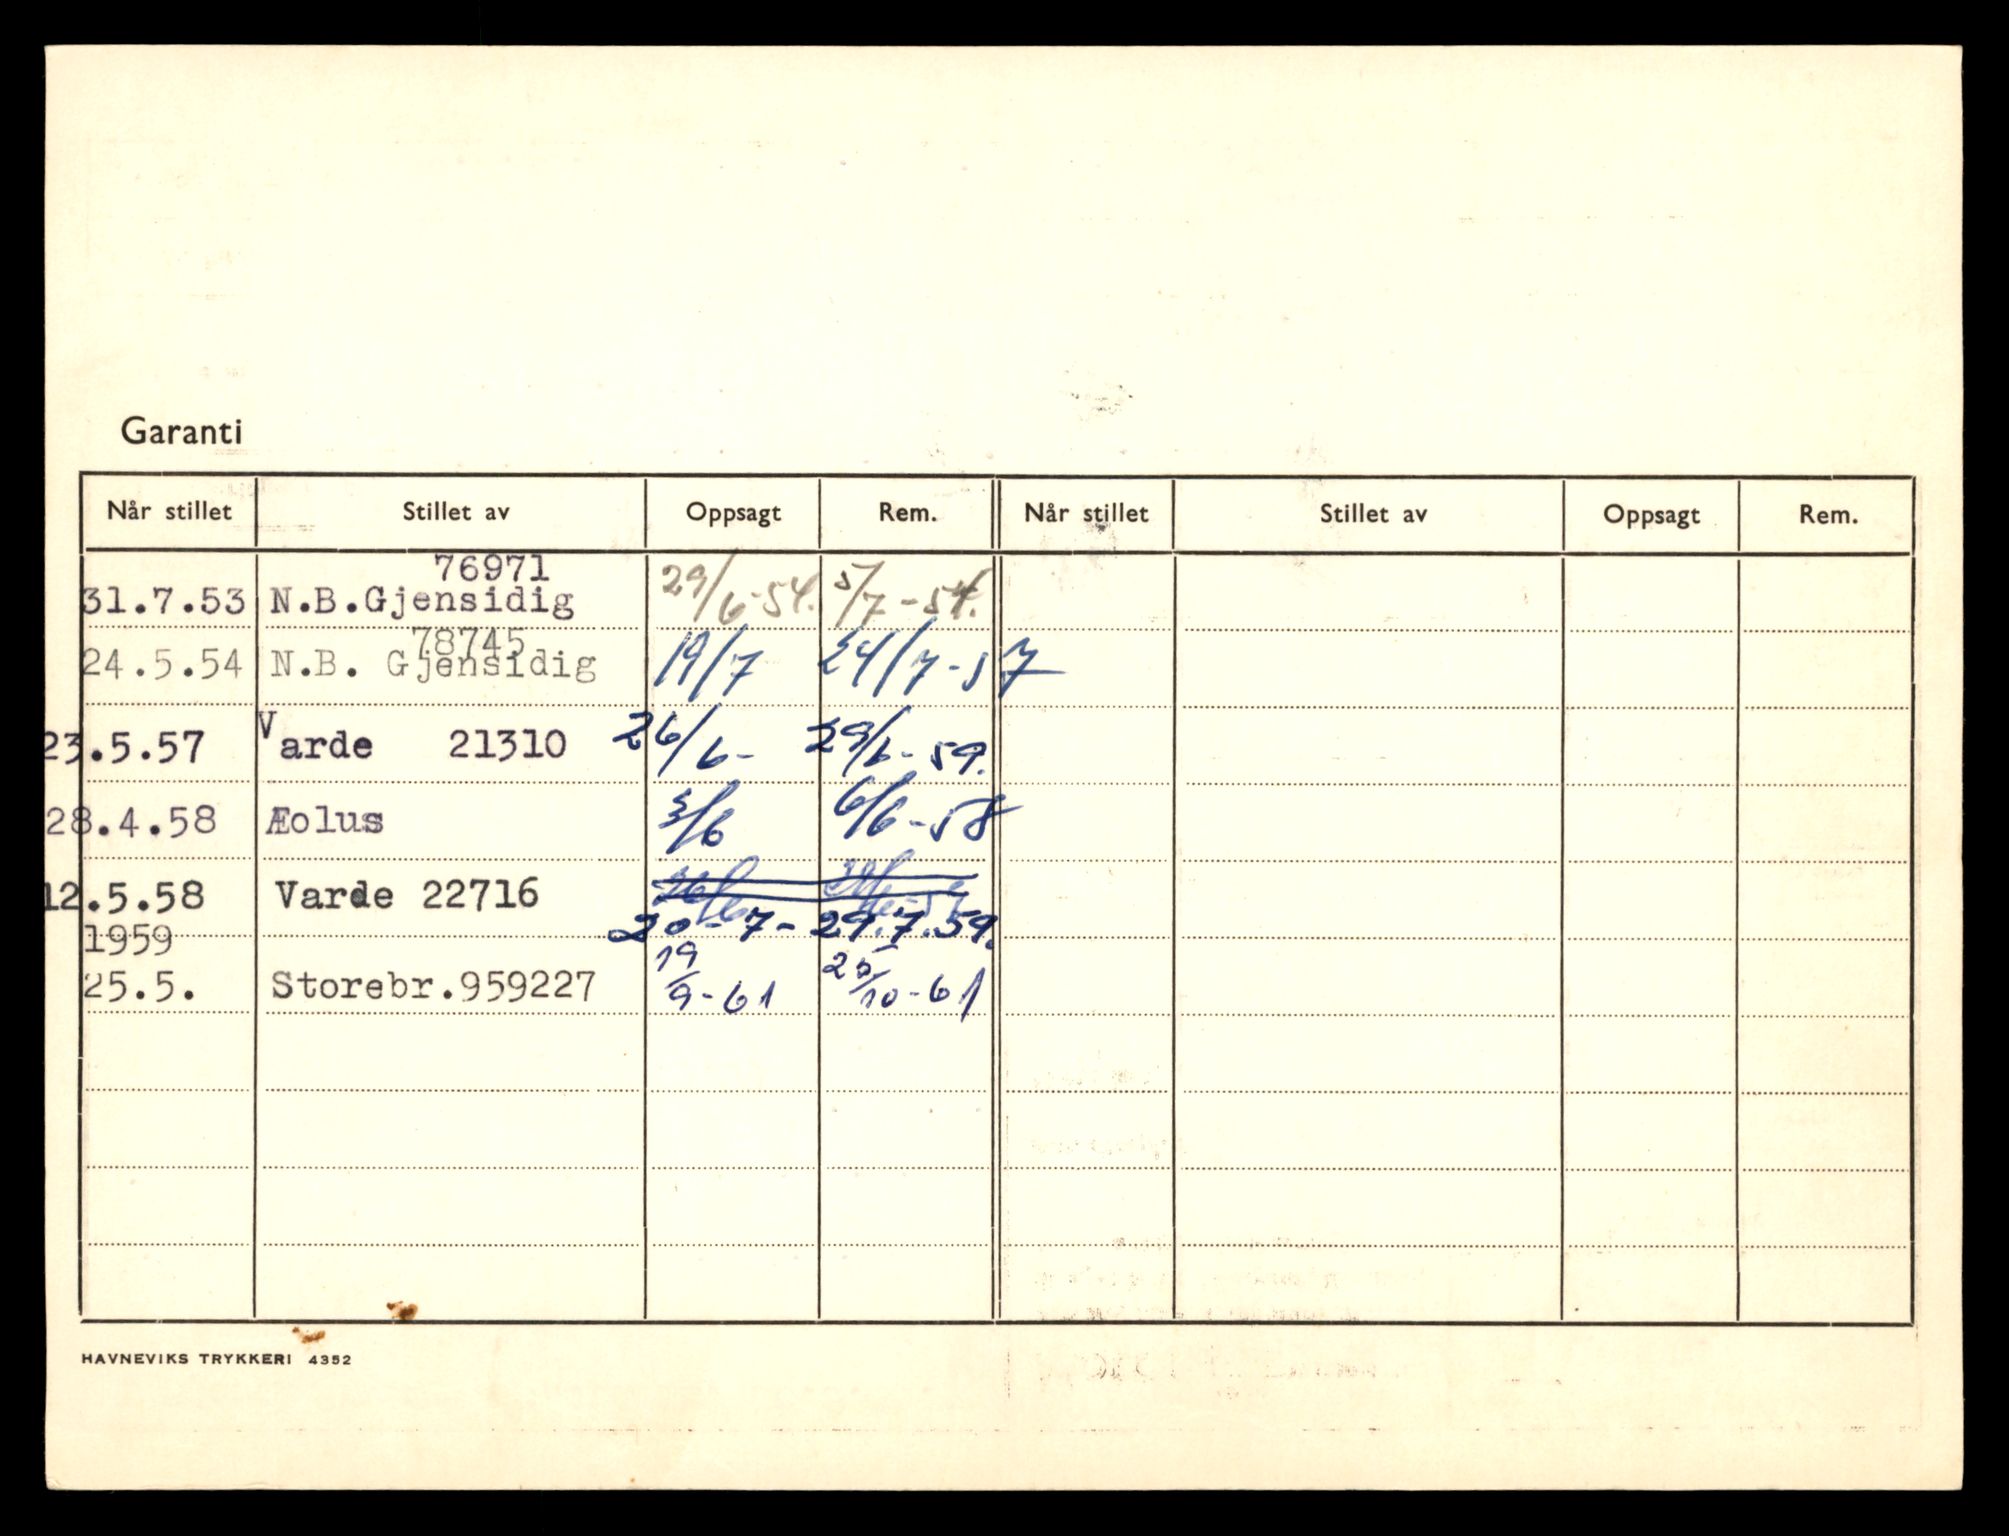 Garanti
Når stillet Stillet av Oppsagt Rem. Når stillet Stillet av Oppsagt Rem.
76971
31.7.53 N.B.Gjensidig 29/6-54. 5/7-54.
78745
24.5.54 N.B. Gjensidig 19/7 24/7-57
23.5.57 Varde 21310 26/6- 29/6-59.
28.4.58 Æolus 3/6 6/6-58
12.5.58 Varde 22716
20-7- 29.7.59.
1959
25.5. Storebr.959227 19/9-61 20/10-61
HAVNEVIKS TRYKKERI 4352